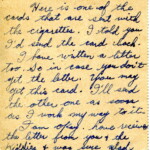 Here is one of the
cards that are sent with
the cigarettes. I told you
I'd send the card back.
I have written a letter
too. So in case you don't
get the letter. You may
get this card. I'll send
the other one as soon
as I work my way to it.
I am okay. Have received
the letter from you & the
kiddies & was sure glad